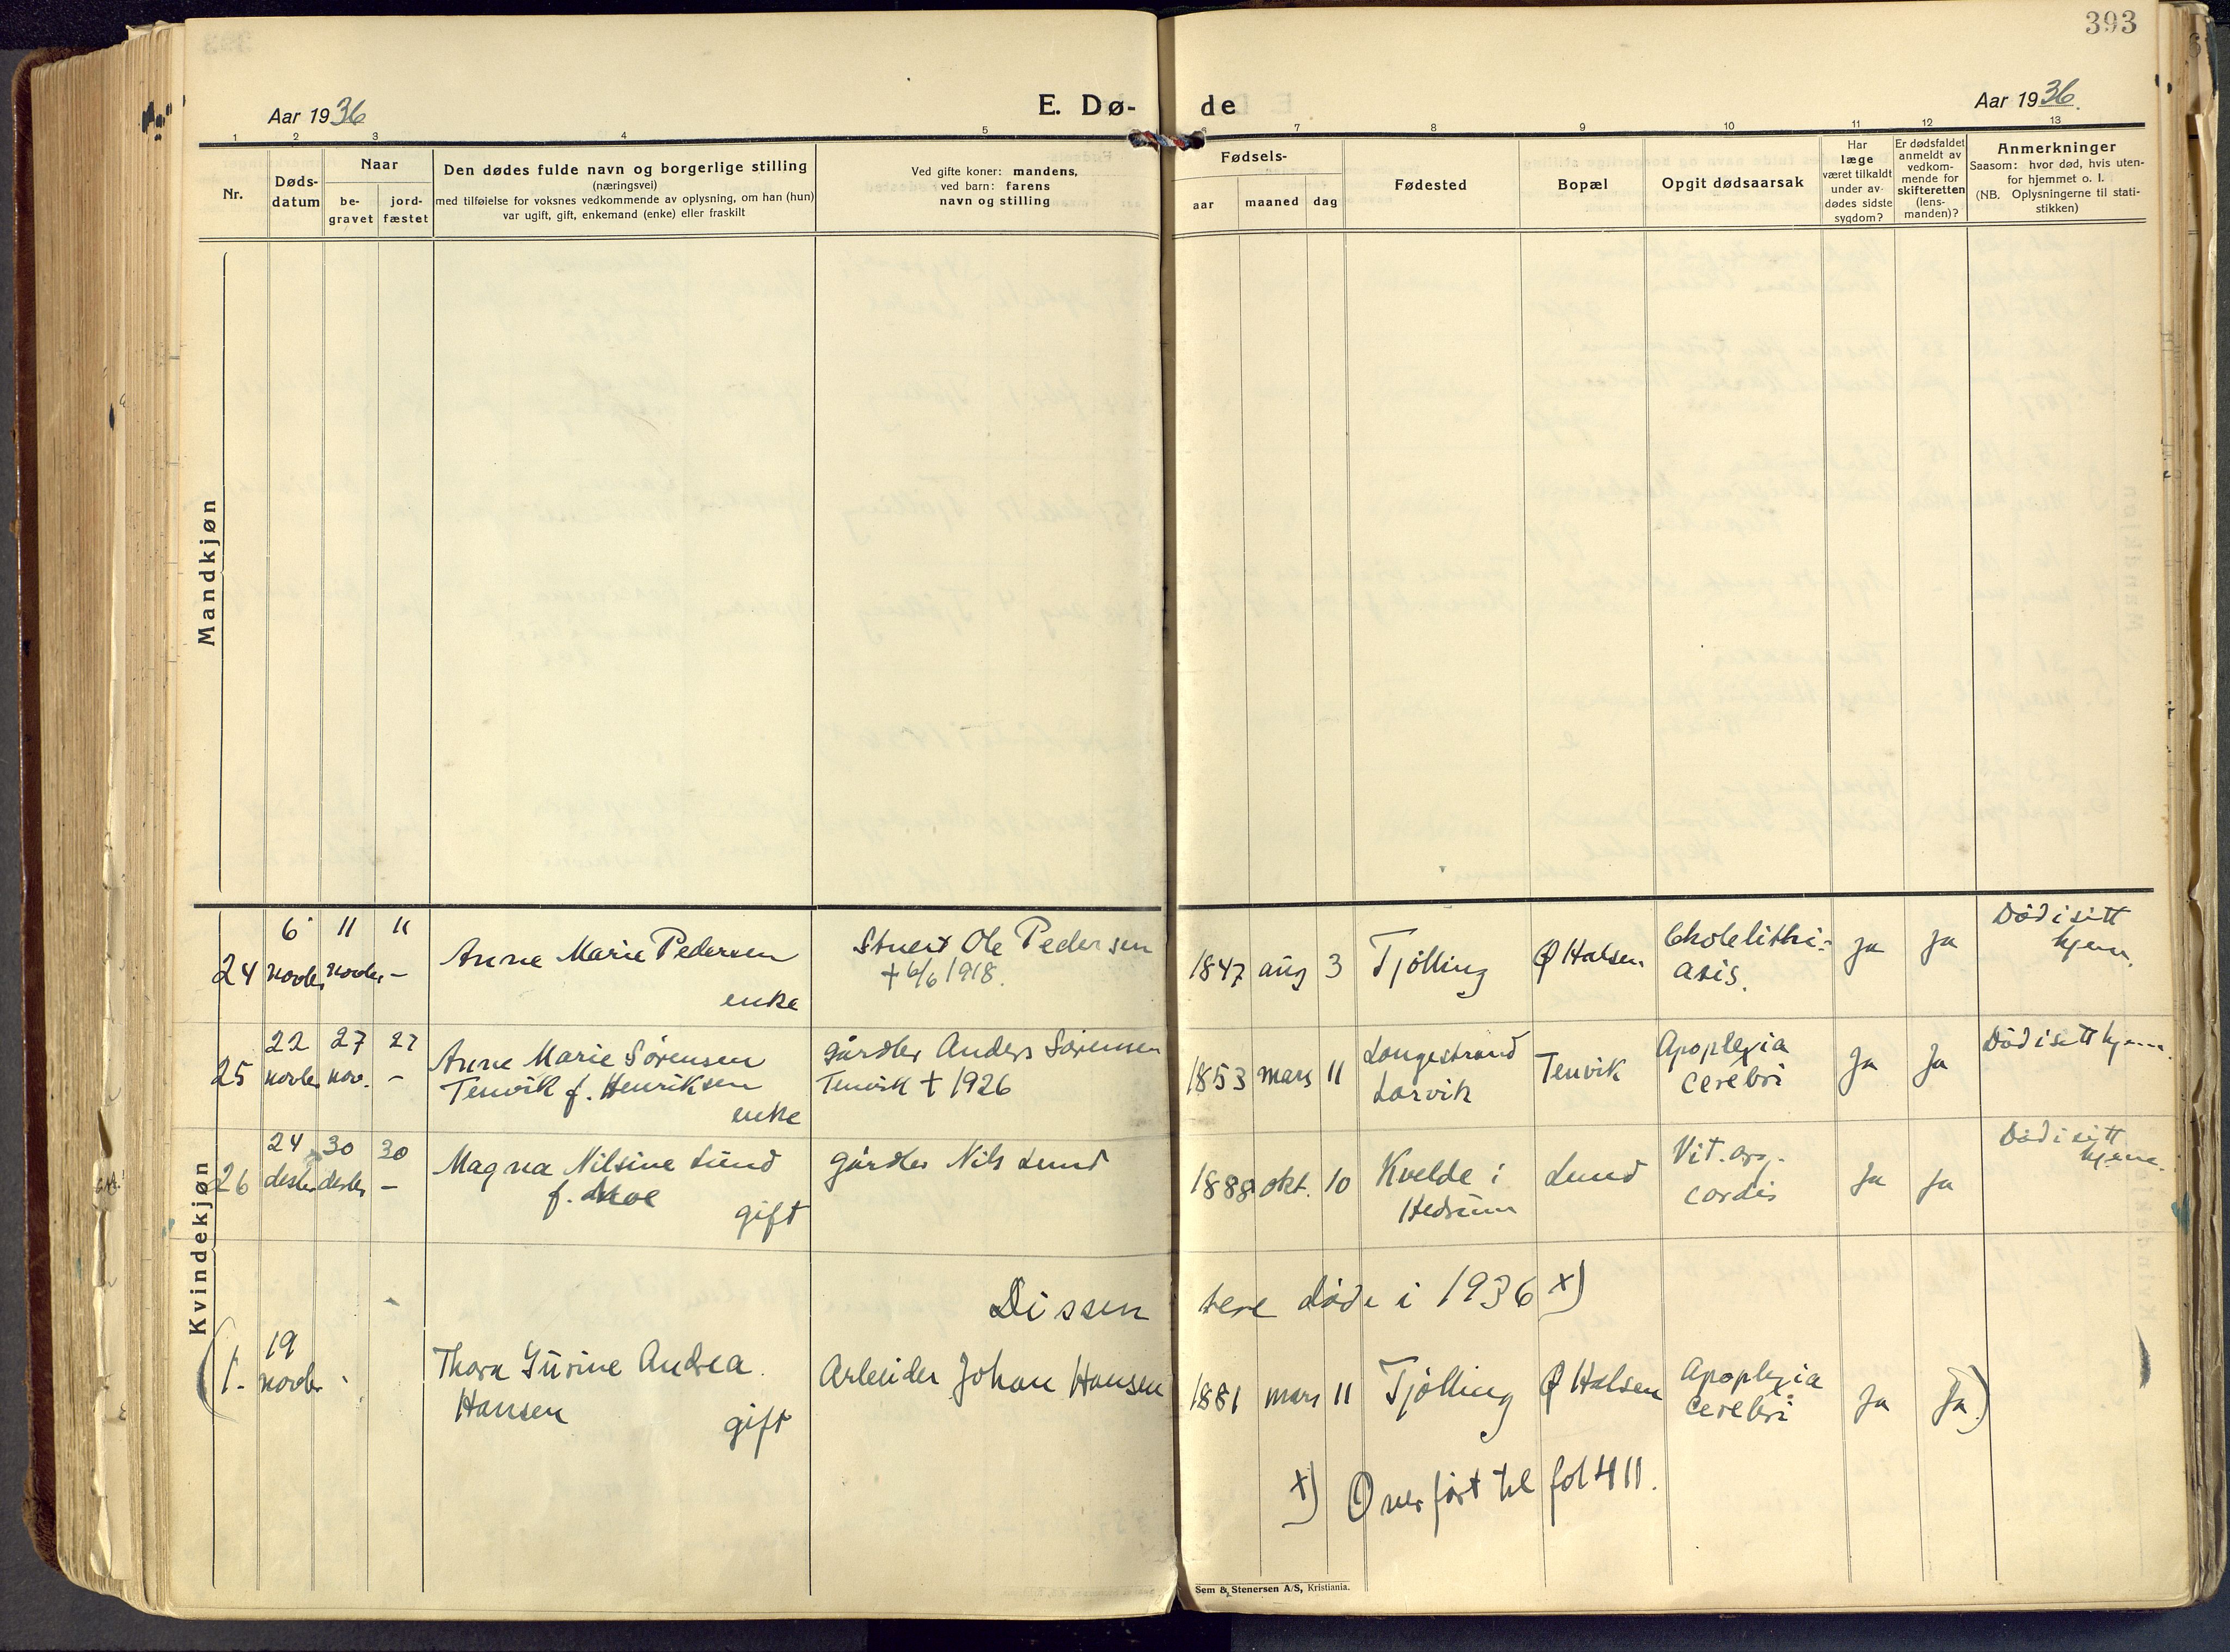 393
Aar 1936
E. Dø-
de
Aar 1936.
1 2 3 4 5 6 7 8 9 10 11 12 13
Nr.
Døds-
datum
Naar
be-
gravet
jord-
fæstet
Den dødes fulde navn og borgerlige stilling
(næringsvei)
med tilføielse for voksnes vedkommende av oplysning, om han (hun)
var ugift, gift, enkemand (enke) eller fraskilt
Ved gifte koner: mandens,
ved barn: farens
navn og stilling
Fødsels-
aar
maaned
dag
Fødested
Bopæl
Opgit dødsaarsak
Har
læge
været tilkaldt
under av-
dødes sidste
sygdom?
Er dødsfaldet
anmeldt av
vedkom-
mende for
skifteretten
(lens-
manden)?
Anmerkninger
Saasom: hvor død, hvis uten-
for hjemmet o. l.
(NB. Oplysningerne til stati-
stikken)
Mandkjøn
Kvindekjøn
24
6
novbr
11
novbr
11
-
Anne Marie Pedersen
enke
Stuert Ole Pedersen
† 6/6 1918.
1847 aug 3
Tjölling
Ø Halsen
Cholelithi-
asis.
Ja
Ja
Død i sitt
hjem.
25
22
novbr
27
nov.
27
-
Anne Marie Sørensen
Tenvik f. Henriksen
enke
gårdbr Anders Sørensen
Tenvik † 1926
1853 mars 11
Langestrand
Larvik
Tenvik
Apoplexia
cerebri
Ja
Ja
Död i sitt hjem.
26
24
desbr
30
desbr
30
-
Magna Nilsine Lund
f. Moe
gift
gårdbr Nils Lund
1888 okt. 10
Kvelde i
Hedrum
Lund
Vit. org.
cordis
Ja
Ja
Död i sitt
hjem.
Dissen
tere døde i 1936 x)
(1.
19
novbr
Thora Gurine Andrea
Hansen
gift
Arbeider Johan Hansen
1881 mars 11
Tjölling
Ø Halsen
Apoplexia
cerebri
Ja
Ja)
x) Overført til fol 411.
Sem & Stenersen A/S, Kristiania.